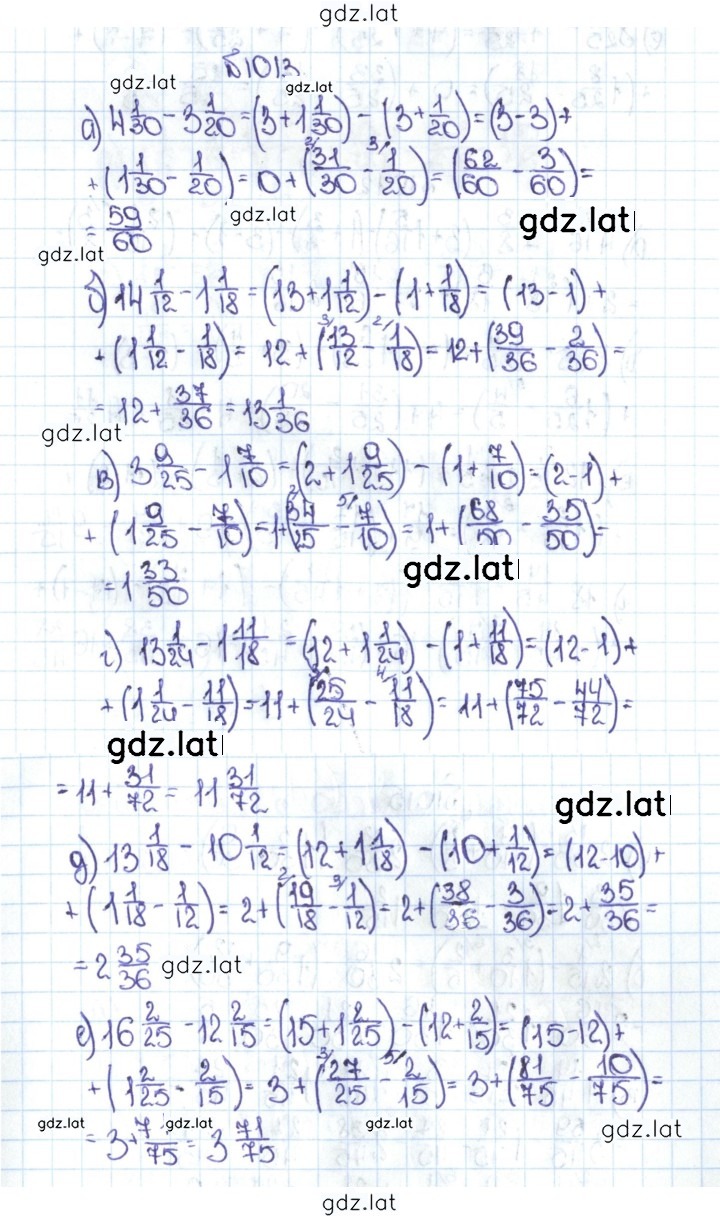 gdz.lat
№1013
gdz.lat
gdz.lat
а) 4 1/30 - 3 1/20 = (3 + 1 1/30) - (3 + 1/20) = (3-3) +
+ (1 1/30 - 1/20) = 0 + (31/30 - 1/20) = (62/60 - 3/60) =
= 59/60
gdz.lat
gdz.lat
gdz.lat
б) 14 1/12 - 1 1/18 = (13 + 1 1/12) - (1 + 1/18) = (13 - 1) +
+ (1 1/12 - 1/18) = 12 + (13/12 - 1/18) = 12 + (39/36 - 2/36) =
= 12 + 37/36 = 13 1/36
gdz.lat
в) 3 9/25 - 1 7/10 = (2 + 1 9/25) - (1 + 7/10) = (2-1) +
+ (1 9/25 - 7/10) = 1 + (34/25 - 7/10) = 1 + (68/50 - 35/50) =
gdz.lat
= 1 33/50
г) 13 1/24 - 1 11/18 = (12 + 1 1/24) - (1 + 11/18) = (12 - 1) +
+ (1 1/24 - 11/18) = 11 + (25/24 - 11/18) = 11 + (75/72 - 44/72) =
gdz.lat
= 11 + 31/72 = 11 31/72
gdz.lat
д) 13 1/18 - 10 1/12 = (12 + 1 1/18) - (10 + 1/12) = (12-10) +
+ (1 1/18 - 1/12) = 2 + (19/18 - 1/12) = 2 + (38/36 - 3/36) = 2 + 35/36 =
= 2 35/36
gdz.lat
е) 16 2/25 - 12 2/15 = (15 + 1 2/25) - (12 + 2/15) = (15-12) +
+ (1 2/25 - 2/15) = 3 + (27/25 - 2/15) = 3 + (81/75 - 10/75) =
gdz.lat
gdz.lat
gdz.lat
gdz.lat
= 3 + 7 /75 = 3 71/75
gdz.lat